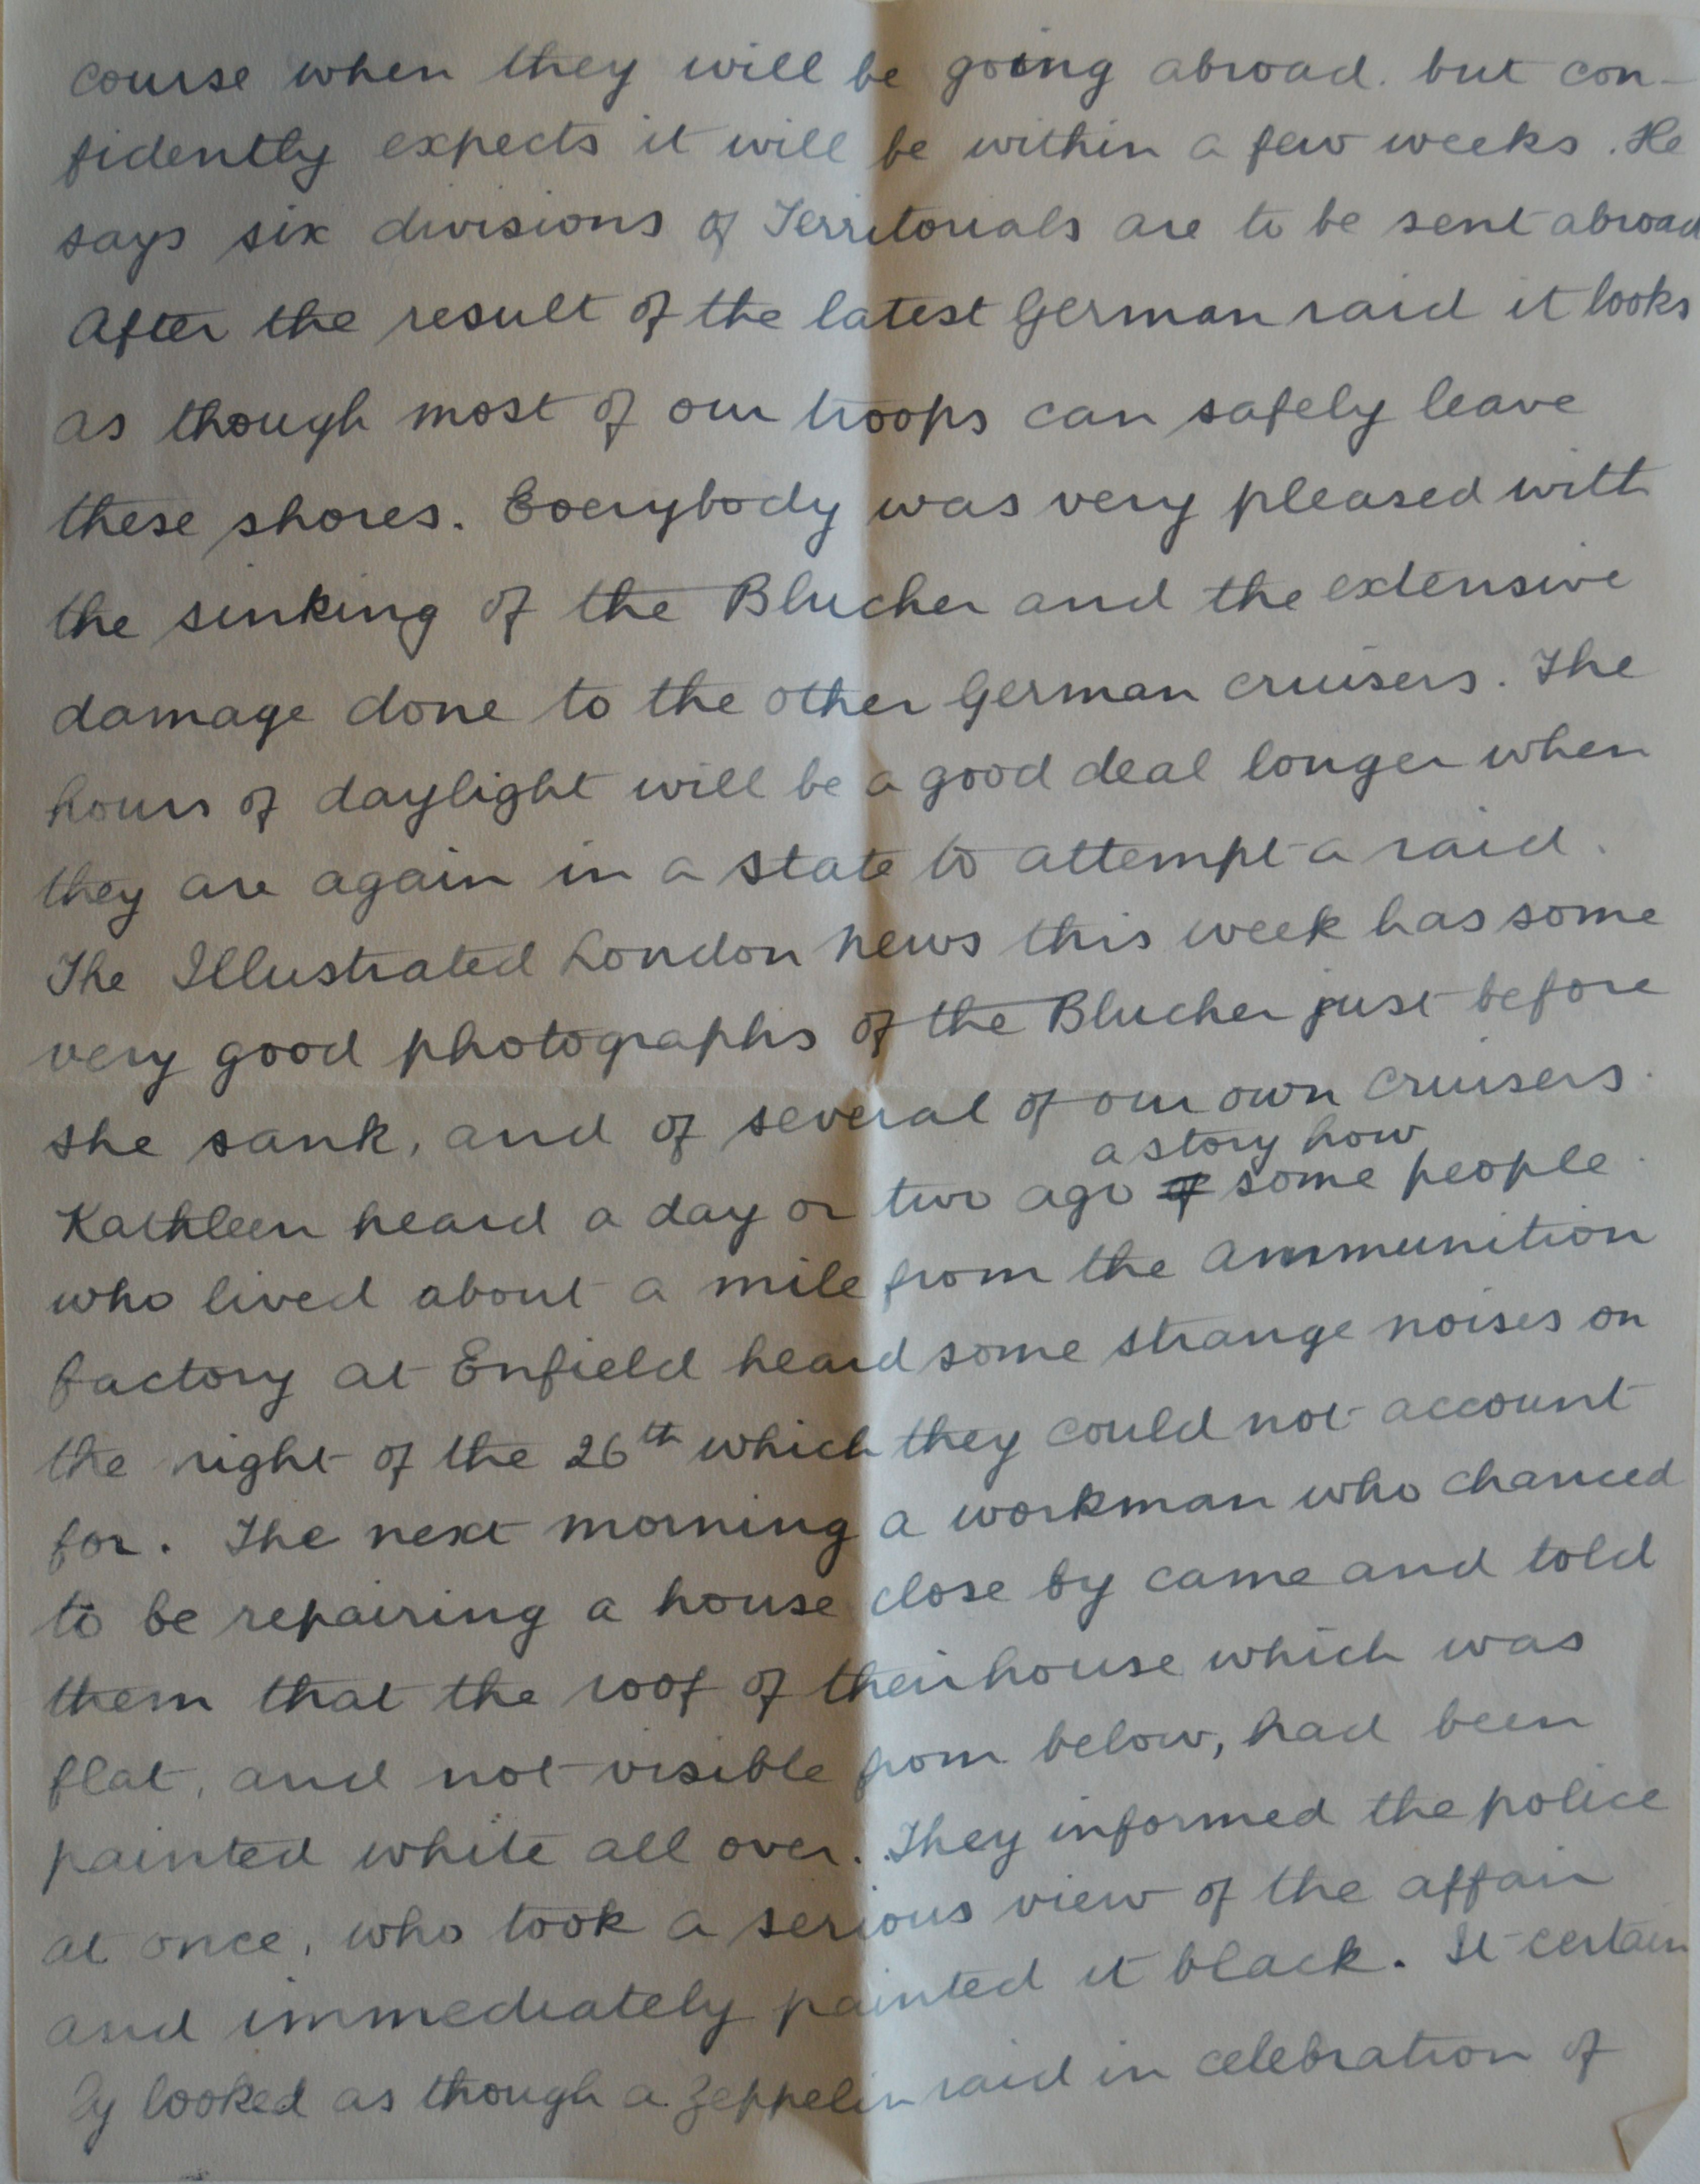 course when they will be going abroad. but con-
fidently expects it will be within a few weeks. He
says six divisions of Territorials are to be sent abroad
After the result of the latest German raid it looks
as though most of our troops can safely leave
these shores. Everybody was very pleased with
the sinking of the Blucher and the extensive
damage done to the other German cruisers. The
hours of daylight will be a good deal longer when
they are again in a state to attempt a raid.
The Illustrated London News this week has some
very good photographs of the Blucher just before
she sank, and of several of our own cruisers.
a story how
Kathleen heard a day or two ago of some people
who lived about a mile from the ammunition
factory at Enfield heard some strange noises on
the night of the 26th which they could not account
for. The next morning a workman who chanced
to be repairing a house close by came and told
them that the roof of their house which was
flat, and not visible from below, had been
painted white all over. They informed the police
at once, who took a serious view of the affair
and immediately painted it black. It certain
ly looked as though a Zeppelin raid in celebration of